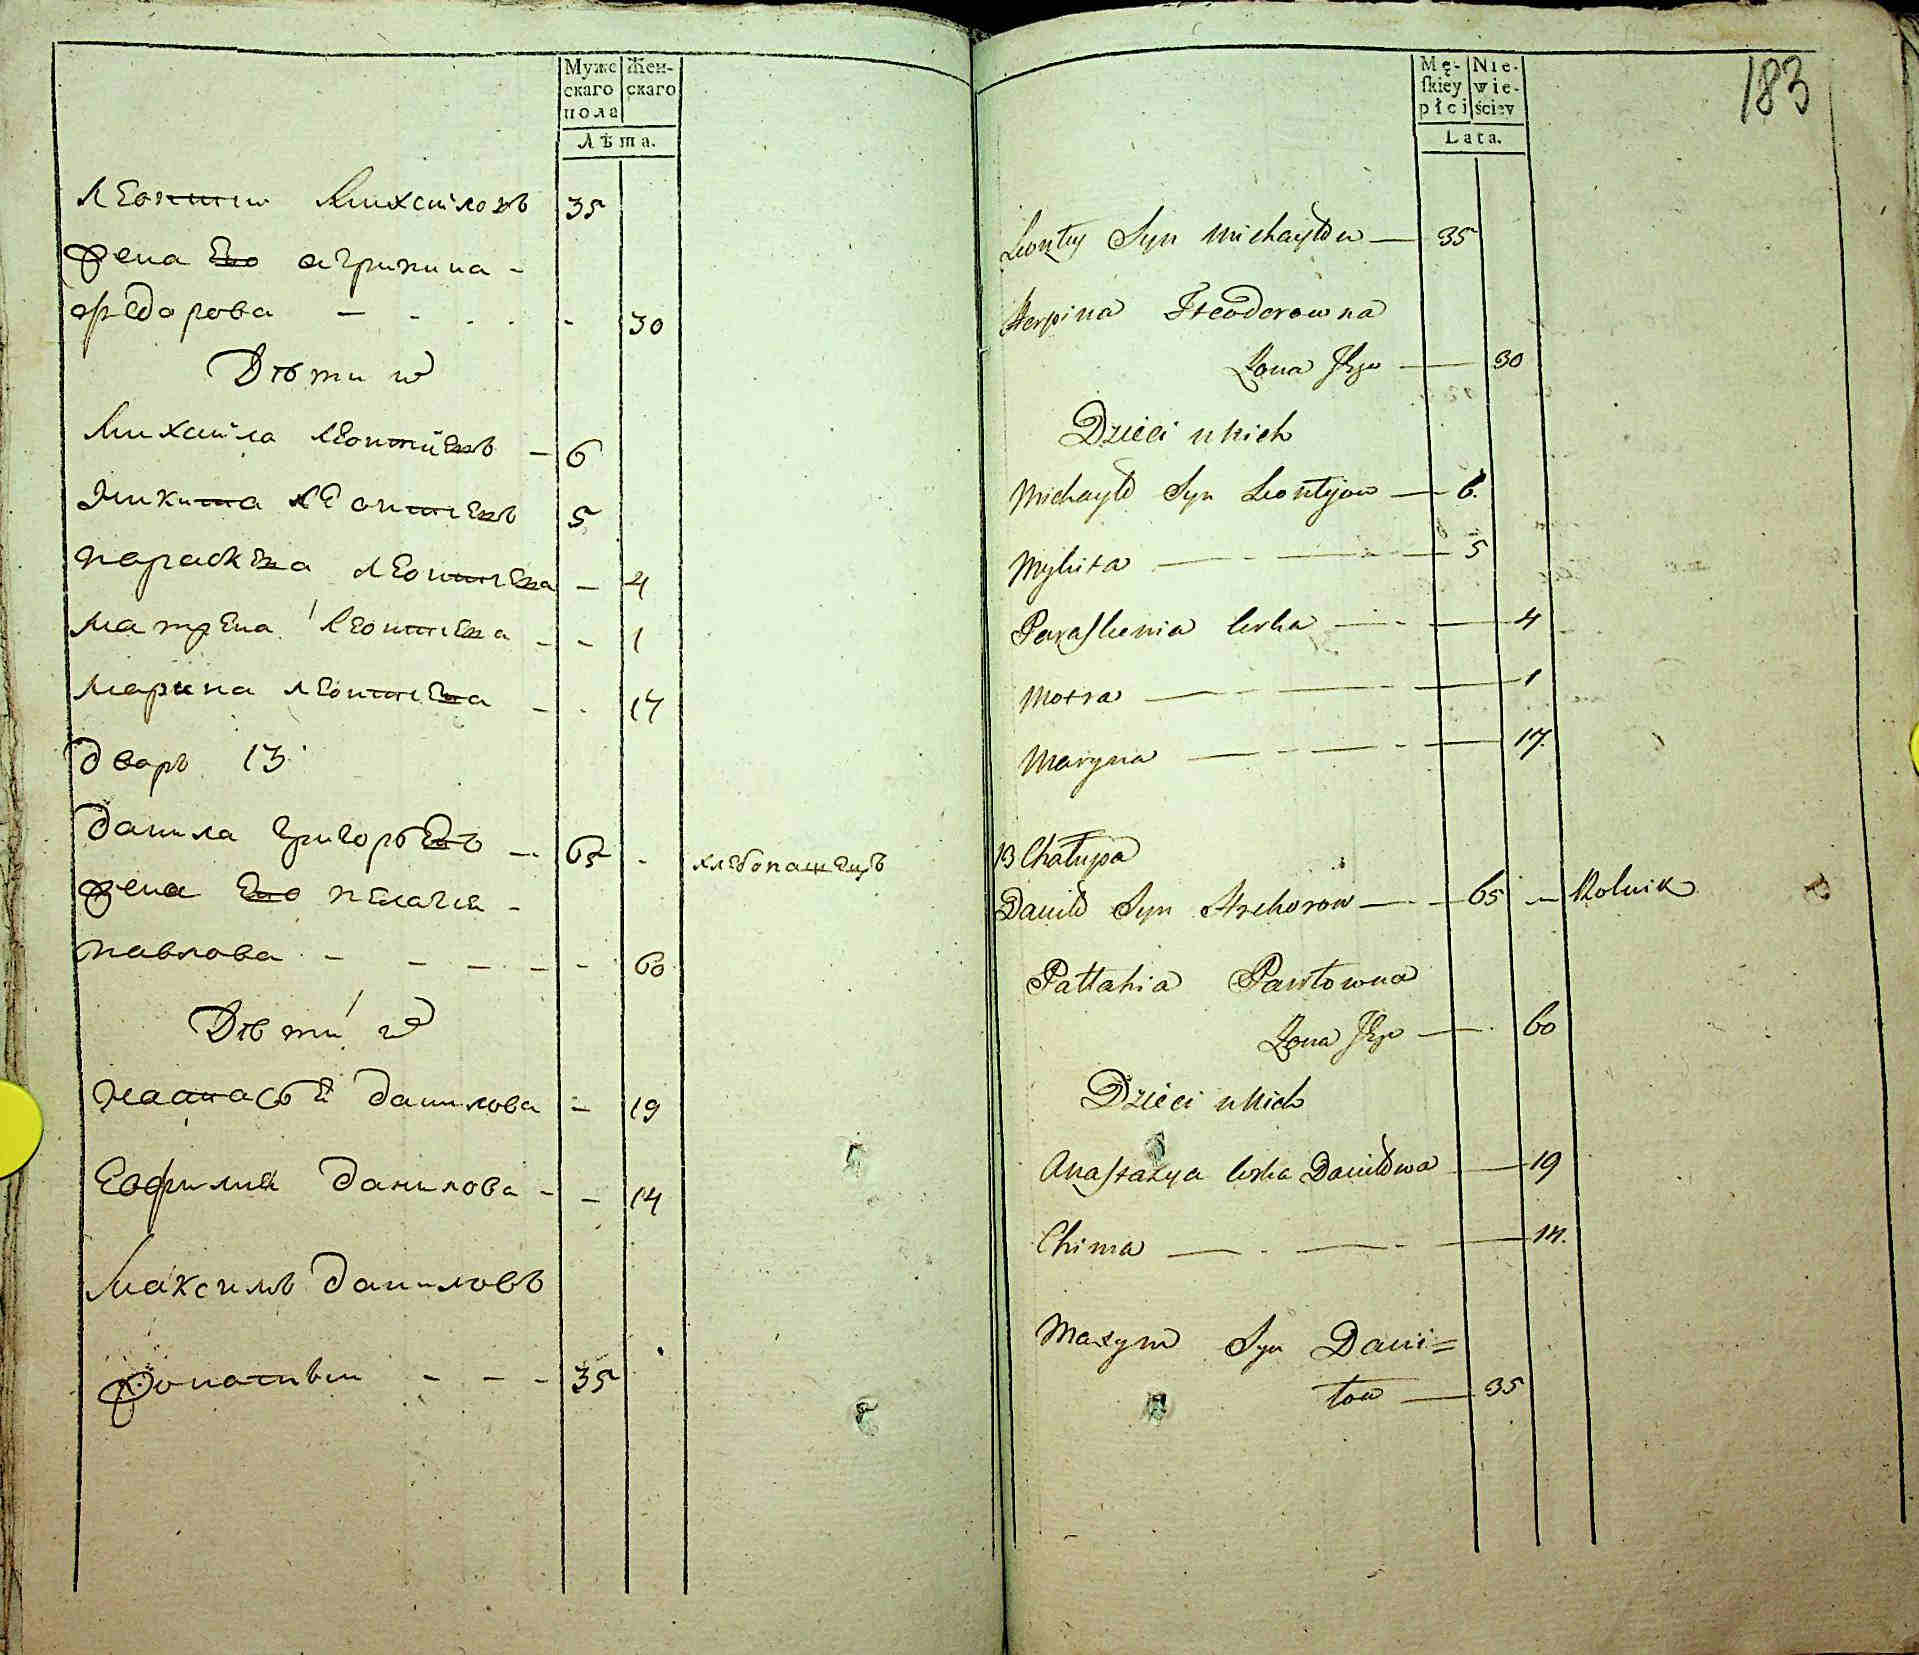 Муже
скаго
пола
Жен-
скаго
Лѣта.
Леонтии Михаиловъ 35
жена Ево агрипина -
федорова - - - - - 30
Дѣти
Михаила Леонтиевъ - 6
Микита Леонтиевъ 5
параскева Леонтиева - 4
матрена Леонтиева - - 1
марина Леонтиева - - 17
дворъ 13
данила григорьевъ - 65 - хлебопашецъ
жена Ево пелагия -
павлова - - - - - 60
Дѣти
настасья данилова - 19
Евфимия данилова - - 14
Максимъ даниловъ
- - - 35
183
Mę-
skiey
płci
Nie-
wie-
ściey
Lata.
Leonty Syn Michayłow — 35
Herpina Fteodorowna
Żona Jego — 30
Dzieci u Nich
Michayło Syn Leontyow — 6.
Mykita — - — - — 5
Paraskewia Corka — - — 4
Motra — - — - — 1
Maryna — - — - — 17.
13 Chałupa
Daniło Syn Hrehorow — - 65 - Rolnik
Pałłahia Pawłowna
Żona Jego — - 60
Dzieci u Nich
Anastazya Corka Daniłowa — 19
Chima — - — - — 14.
Maxym Syn Dani=
łow — 35